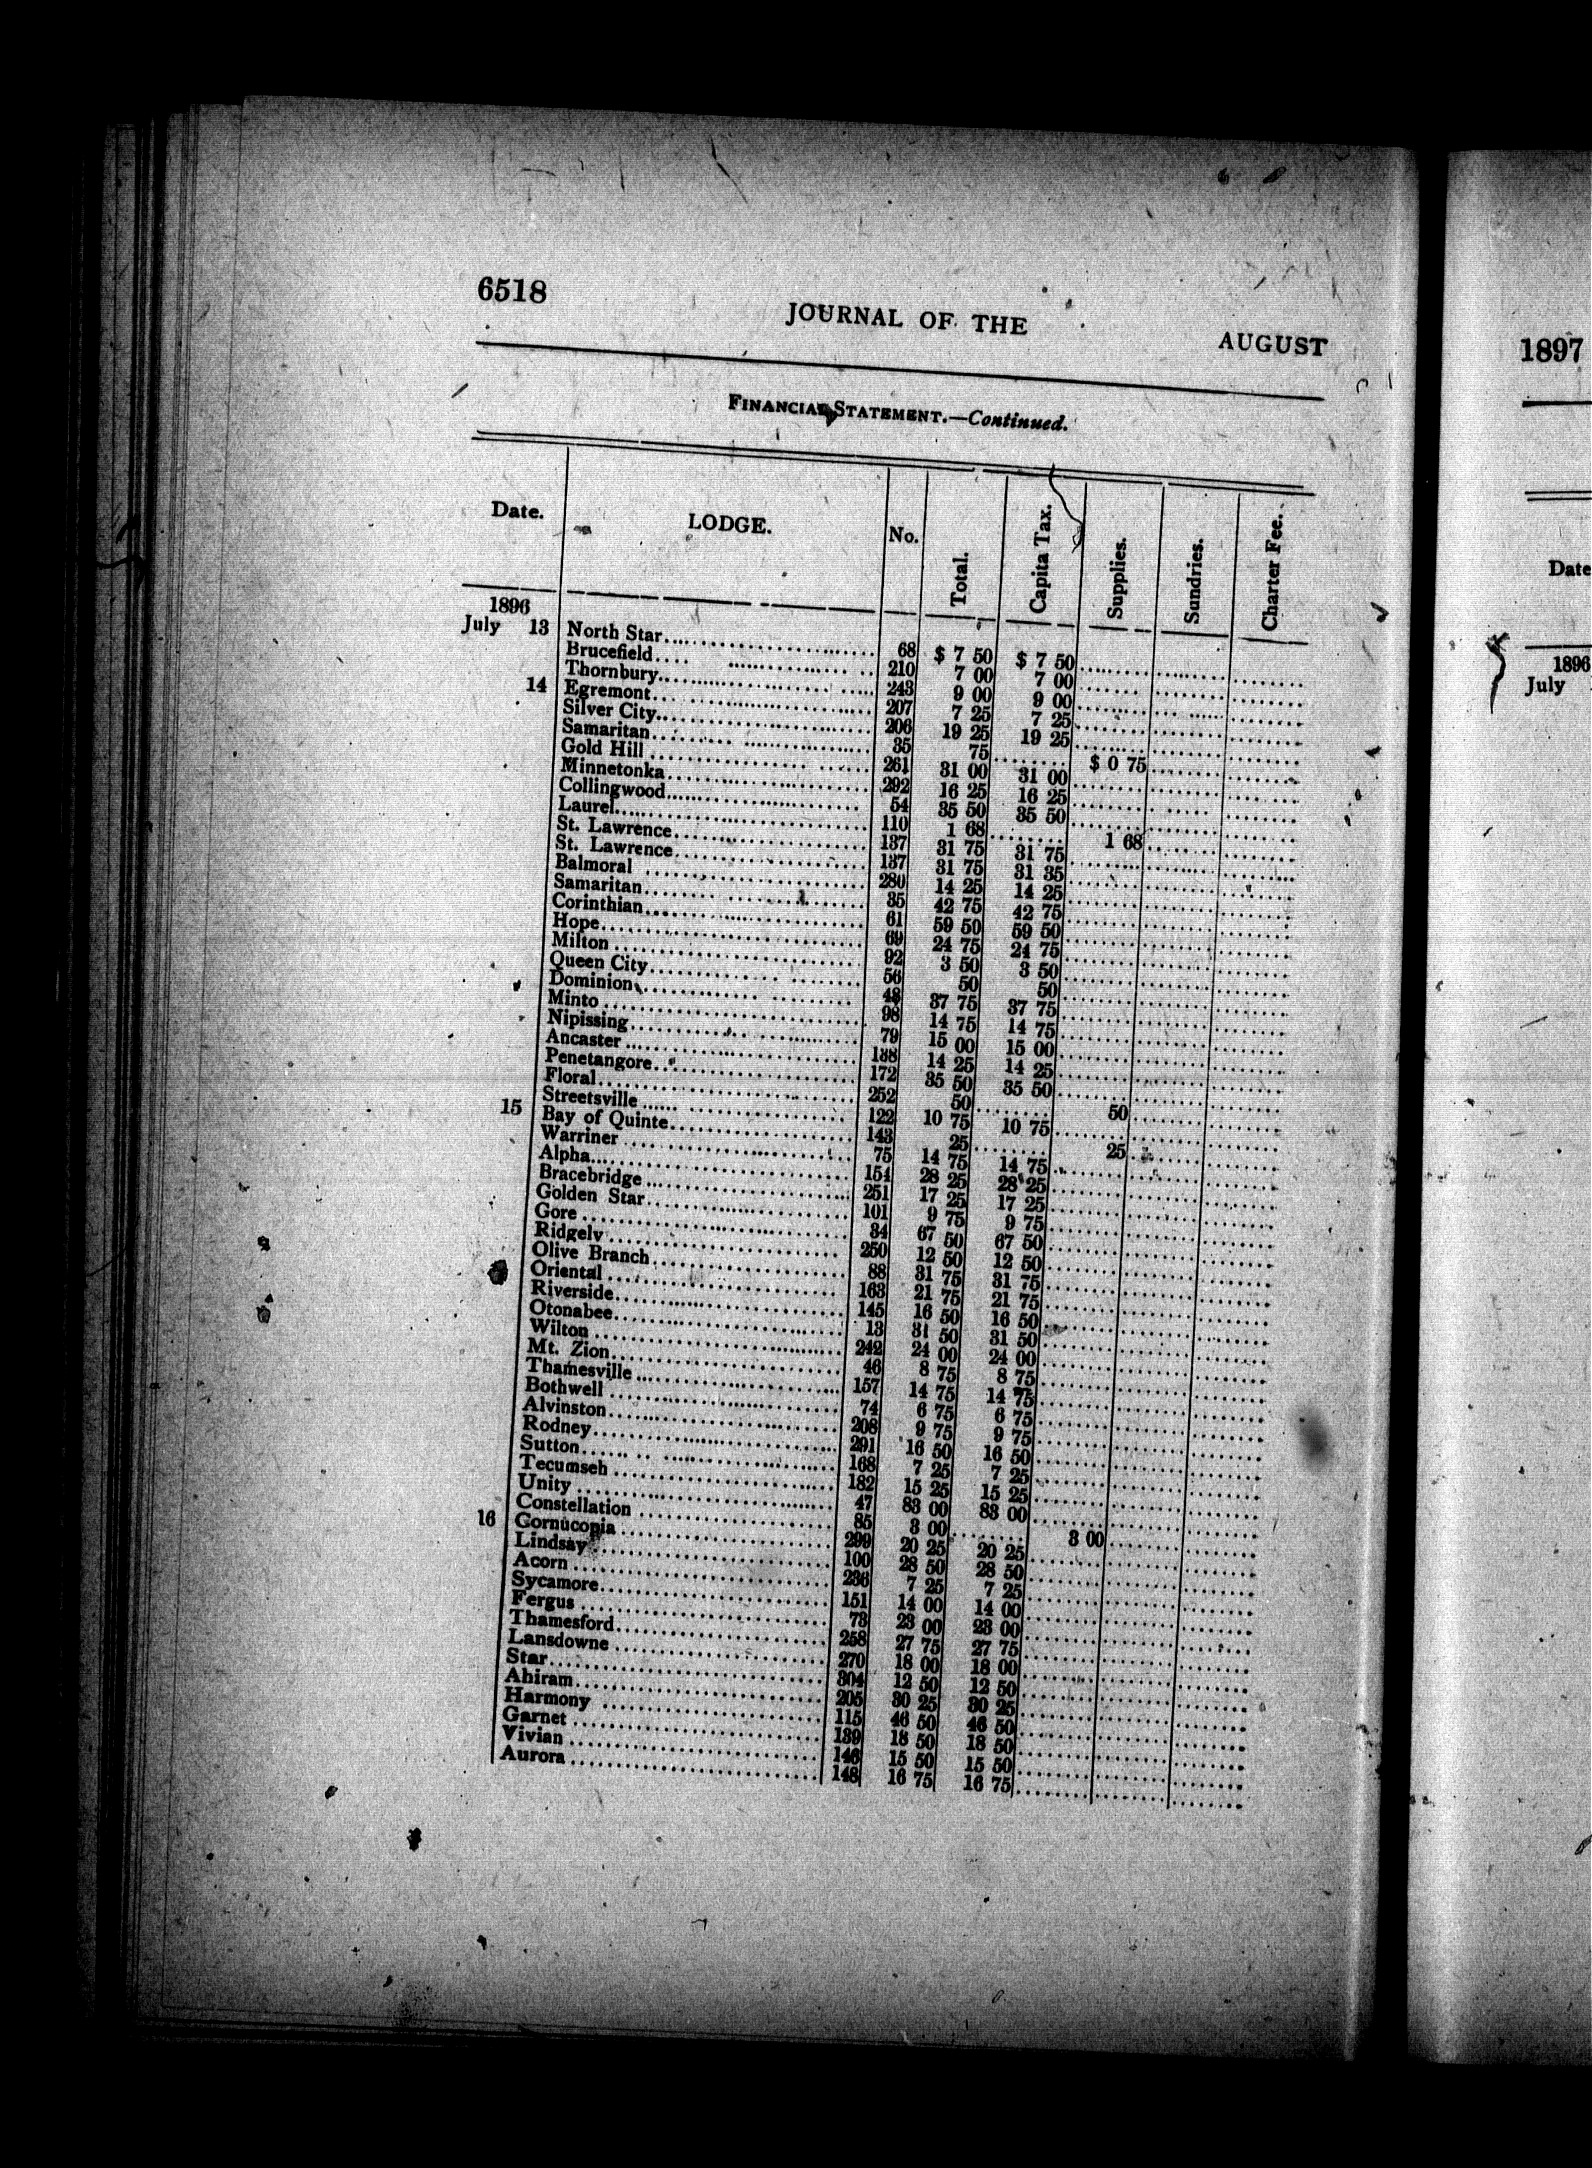 6518 JOURNAL OF THE AUGUST
FINANCIAL STATEMENT.—Continued.
Date. LODGE. No. Total. Capita Tax. Supplies. Sundries. Charter Fee.
1896
July 13 North Star 68 $ 7 50 $ 7 50
Brucefield 210 7 00 7 00
Thornbury 243 9 00 9 00
14 Egremont 207 7 25 7 25
Silver City 206 19 25 19 25
Samaritan 35 75 $ 0 75
Gold Hill 261 31 00 31 00
Minnetonka 292 16 25 16 25
Collingwood 54 35 50 35 50
Laurel 110 1 68 1 68
St. Lawrence 137 31 75 31 75
St. Lawrence 137 31 75 31 35
Balmoral 280 14 25 14 25
Samaritan 35 42 75 42 75
Corinthian 61 59 50 59 50
Hope 69 24 75 24 75
Milton 92 3 50 3 50
Queen City 56 50 50
Dominion 48 37 75 37 75
Minto 98 14 75 14 75
Nipissing 79 15 00 15 00
Ancaster 138 14 25 14 25
Penetangore 172 35 50 35 50
Floral 252 50 50
Streetsville 122 10 75 10 75
15 Bay of Quinte 143 25 25
Warriner 75 14 75 14 75
Alpha 154 28 25 28 25
Bracebridge 251 17 25 17 25
Golden Star 101 9 75 9 75
Gore 34 67 50 67 50
Ridgely 250 12 50 12 50
Olive Branch 88 31 75 31 75
Oriental 163 21 75 21 75
Riverside 145 16 50 16 50
Otonabee 13 31 50 31 50
Wilton 242 24 00 24 00
Mt. Zion 46 8 75 8 75
Thamesville 157 14 75 14 75
Bothwell 74 6 75 6 75
Alvinston 208 9 75 9 75
Rodney 291 16 50 16 50
Sutton 168 7 25 7 25
Tecumseh 182 15 25 15 25
Unity 47 83 00 83 00
Constellation 85 3 00 3 00
16 Cornucopia 299 20 25 20 25
Lindsay 100 28 50 28 50
Acorn 236 7 25 7 25
Sycamore 151 14 00 14 00
Fergus 73 23 00 23 00
Thamesford 258 27 75 27 75
Lansdowne 270 18 00 18 00
Star 304 12 50 12 50
Ahiram 205 30 25 30 25
Harmony 115 46 50 46 50
Garnet 139 18 50 18 50
Vivian 146 15 50 15 50
Aurora 148 16 75 16 75
1897
Date
1896
July